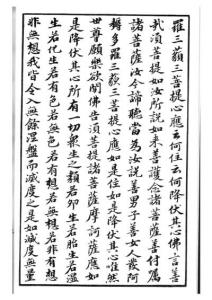 羅三藐三菩提心應云何住云何降伏其心佛言善
哉須菩提如汝所說如来善護念諸菩薩善付属
諸菩薩汝今諦聽當為汝說善男子善女人發阿
耨多羅三藐三菩提心應如是住如是降伏其心唯然
世尊願樂欲聞佛告須菩提諸菩薩摩訶薩應如
是降伏其心所有一切眾生之類若卵生若胎生若濕
生若化生若有色若無色若有想若無想若非有想
非無想我皆令入無餘涅槃而滅度之是如滅度無量